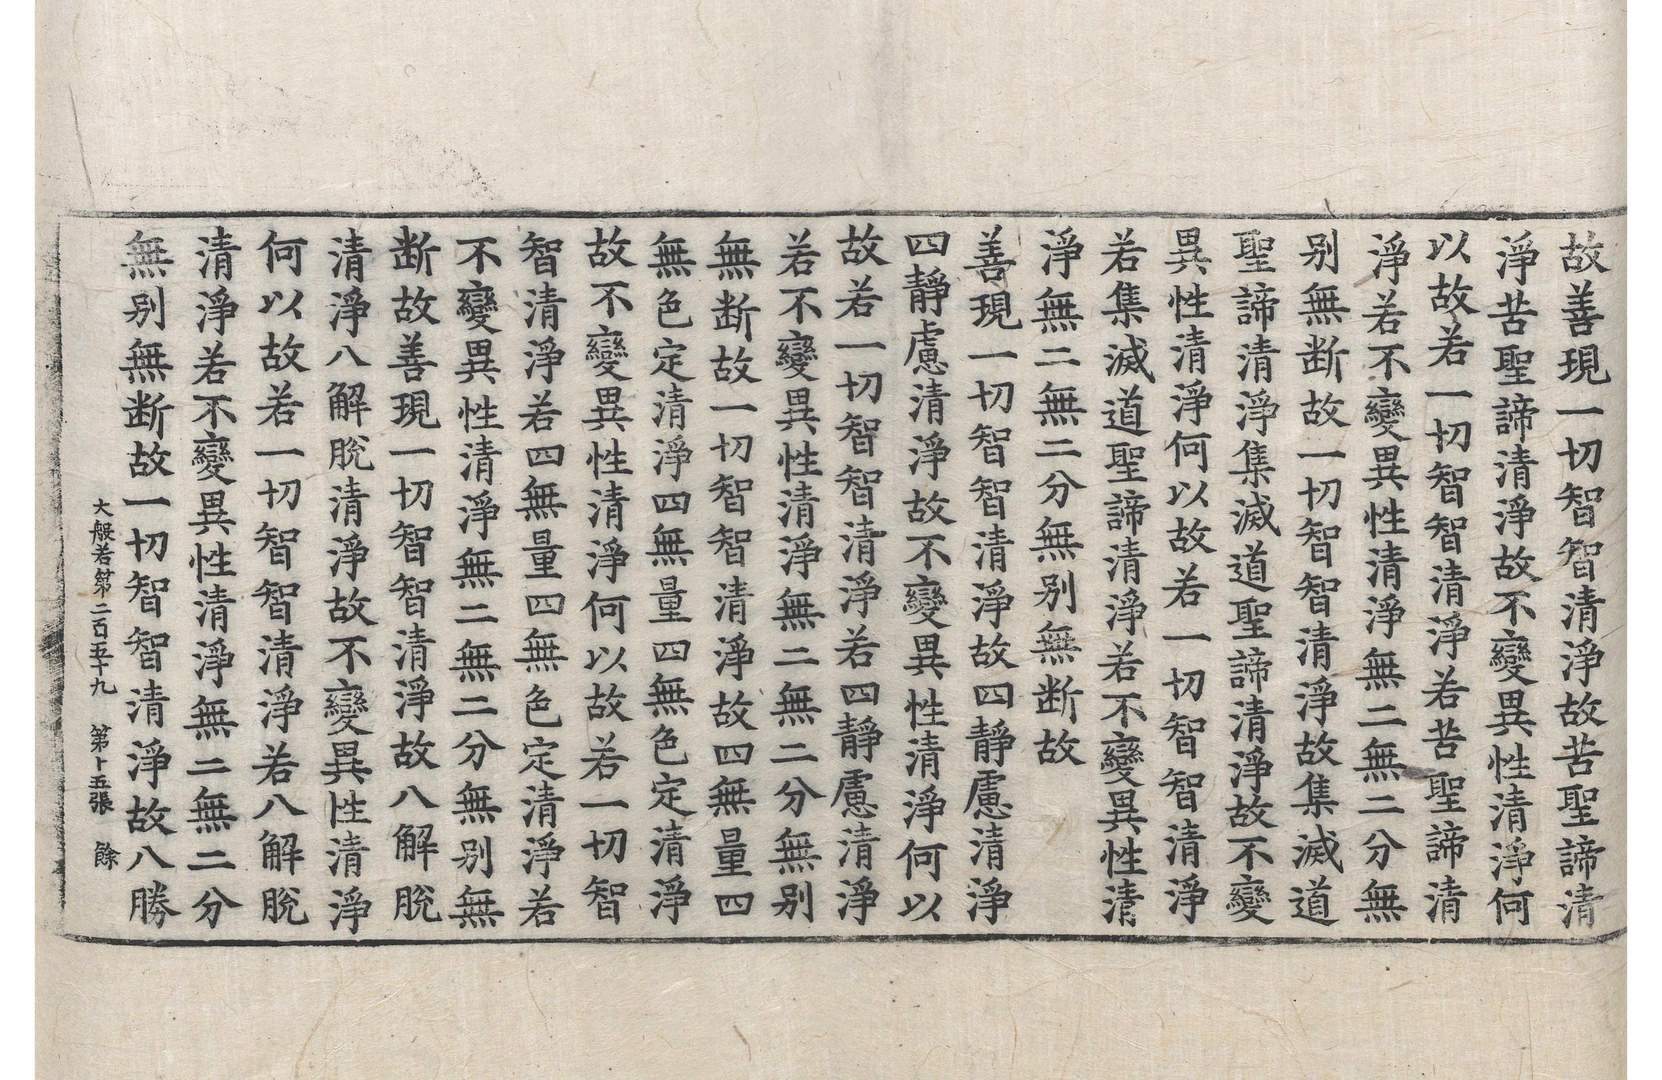 故善現一切智智清淨故苦聖諦清
淨苦聖諦清淨故不變異性清淨何
以故若一切智智清淨若苦聖諦清
淨若不變異性清淨無二無二分無
别無断故一切智智清淨故集滅道
聖諦清淨集滅道聖諦清淨故不變
異性清淨何以故若一切智智清淨
若集滅道聖諦清淨若不變異性清
淨無二無二分無别無断故
善現一切智智清淨故四靜慮清淨
四靜慮清淨故不變異性清淨何以
故若一切智智清淨若四靜慮清淨
若不變異性清淨無二無二分無别
無断故一切智智清淨故四無量四
無色定清淨四無量四無色定清淨
故不變異性清淨何以故若一切智
智清淨若四無量四無色定清淨若
不變異性清淨無二無二分無别無
断故善現一切智智清淨故八解脫
清淨八解脫清淨故不變異性清淨
何以故若一切智智清淨若八解脫
清淨若不變異性清淨無二無二分
無别無断故一切智智清淨故八勝
大般若第二百五十九 第十五張 餘